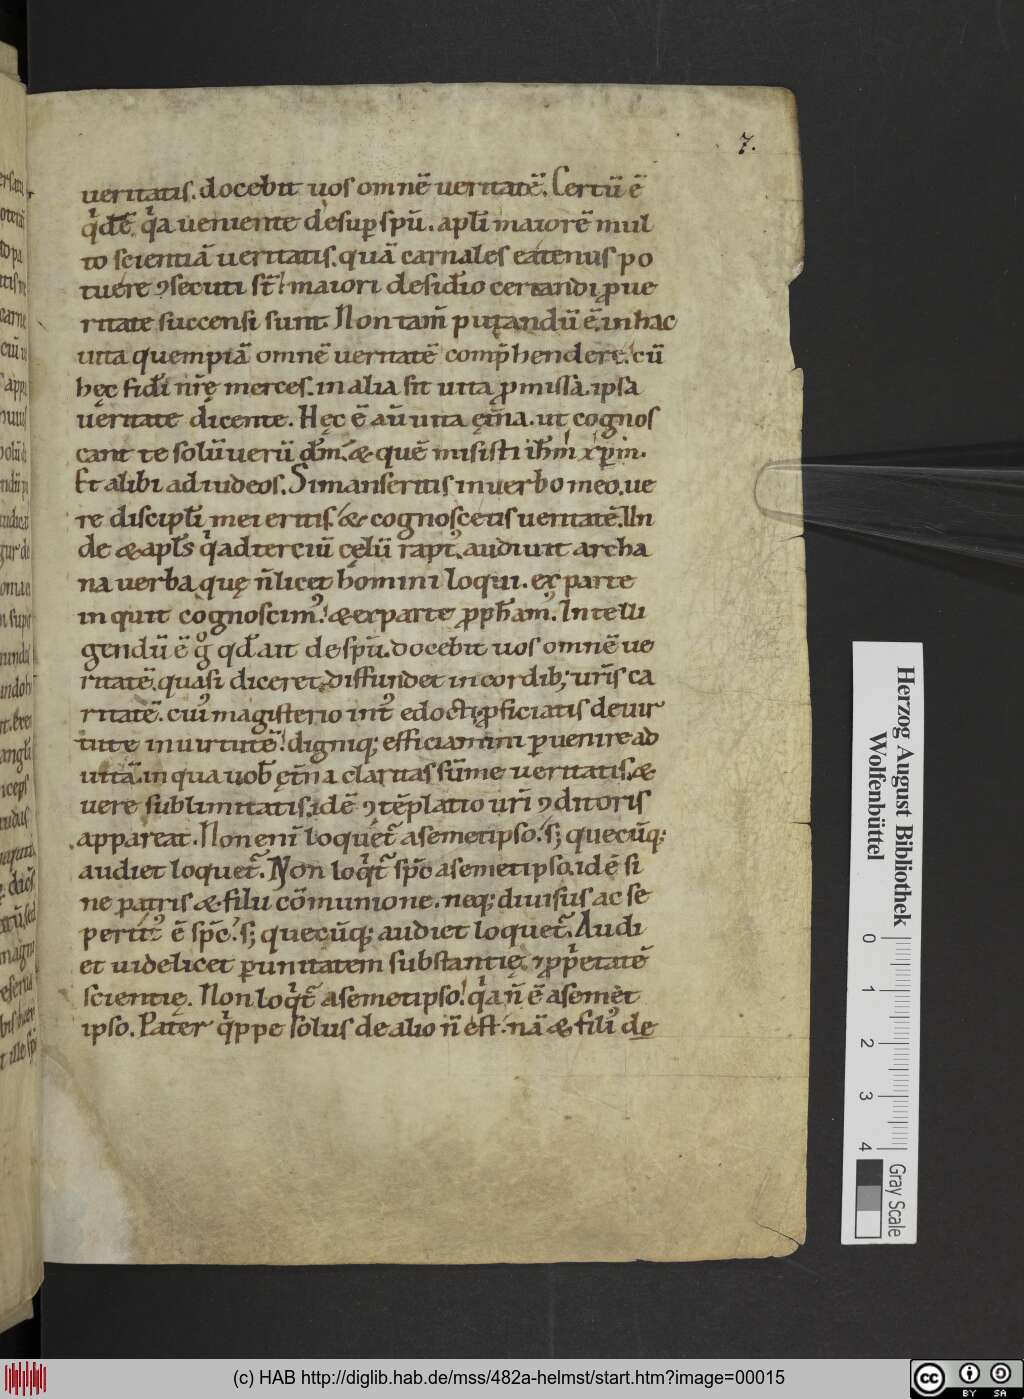 7.
ueritatis. docebit uos omnē ueritatē. Certū ē
qͥdē. qͥa ueniente desuꝑ spū. apl̄i maiorē mul
to scientiā ueritatis. quā carnales eatenus po
tuere ꝯsecuti st̄. maiori desid̄io certandi ꝓ ue
ritate succensi sunt. Non tam̄ putandū ē. in hac
uita quempiā omnē ueritatē compͥhendere. cū
hęc fidi nr̄ę merces. in alia sit uita ꝓmissa. ipsa
ueritate dicente. Hęc ē aū uita ęt̄na. ut cognos
cant te solū uerū dm̄. & quē misisti ihm̄ xp̄m.
Et alibi ad iudeos. Si manseritis in uerbo meo. ue
re discipl̄i mei eritis. & cognoscetis ueritatē. Un
de & apl̄s qͥ ad terciū cęlū rapt᷒. audiuit archa
na uerba quę n̄ licet homini loqui. ex parte
inquit cognoscim᷒. & ex parte ꝓph̄am᷒. Intelli
gendū ē gͦ qd̄ ait de spū. docebit uos omnē ue
ritatē. quasi diceret. Diffundet in cordib; ur̄is ca
ritatē. cui᷒ magisterio int᷒ edocti. ꝓficiatis de uir
tute in uirtutē. digniq; efficiamini ꝑuenire ad
uitā. in qua uob̄ ęt̄na claritas sūme ueritatis. &
uere sublimitatis. idē ꝯtēplatio ur̄i ꝯditoris
appareat. Non enī loquet̄ a semetipso. s; quecūq;
audiet loquet̄. Non loqͥt̄ sp̄c a semetipso. idē si
ne patris & filii cōmunione. neq; diuisus ac se
perit᷒ ē sp̄c. s; quecūq; audiet loquet̄. Audi
et uidelicet ꝑ unitatem substantię. & ꝓpͥetatē
scientię. Non loqͥt̄ a semetipso. qͥa n̄ ē a semet
ipso. Pater qͥppe solus de alio n̄ est. nā & fili᷒ de
Herzog August Bibliothek
Wolfenbüttel
0 1 2 3 4
Gray Scale
(c) HAB http://diglib.hab.de/mss/482a-helmst/start.htm?image=00015
cc BY SA